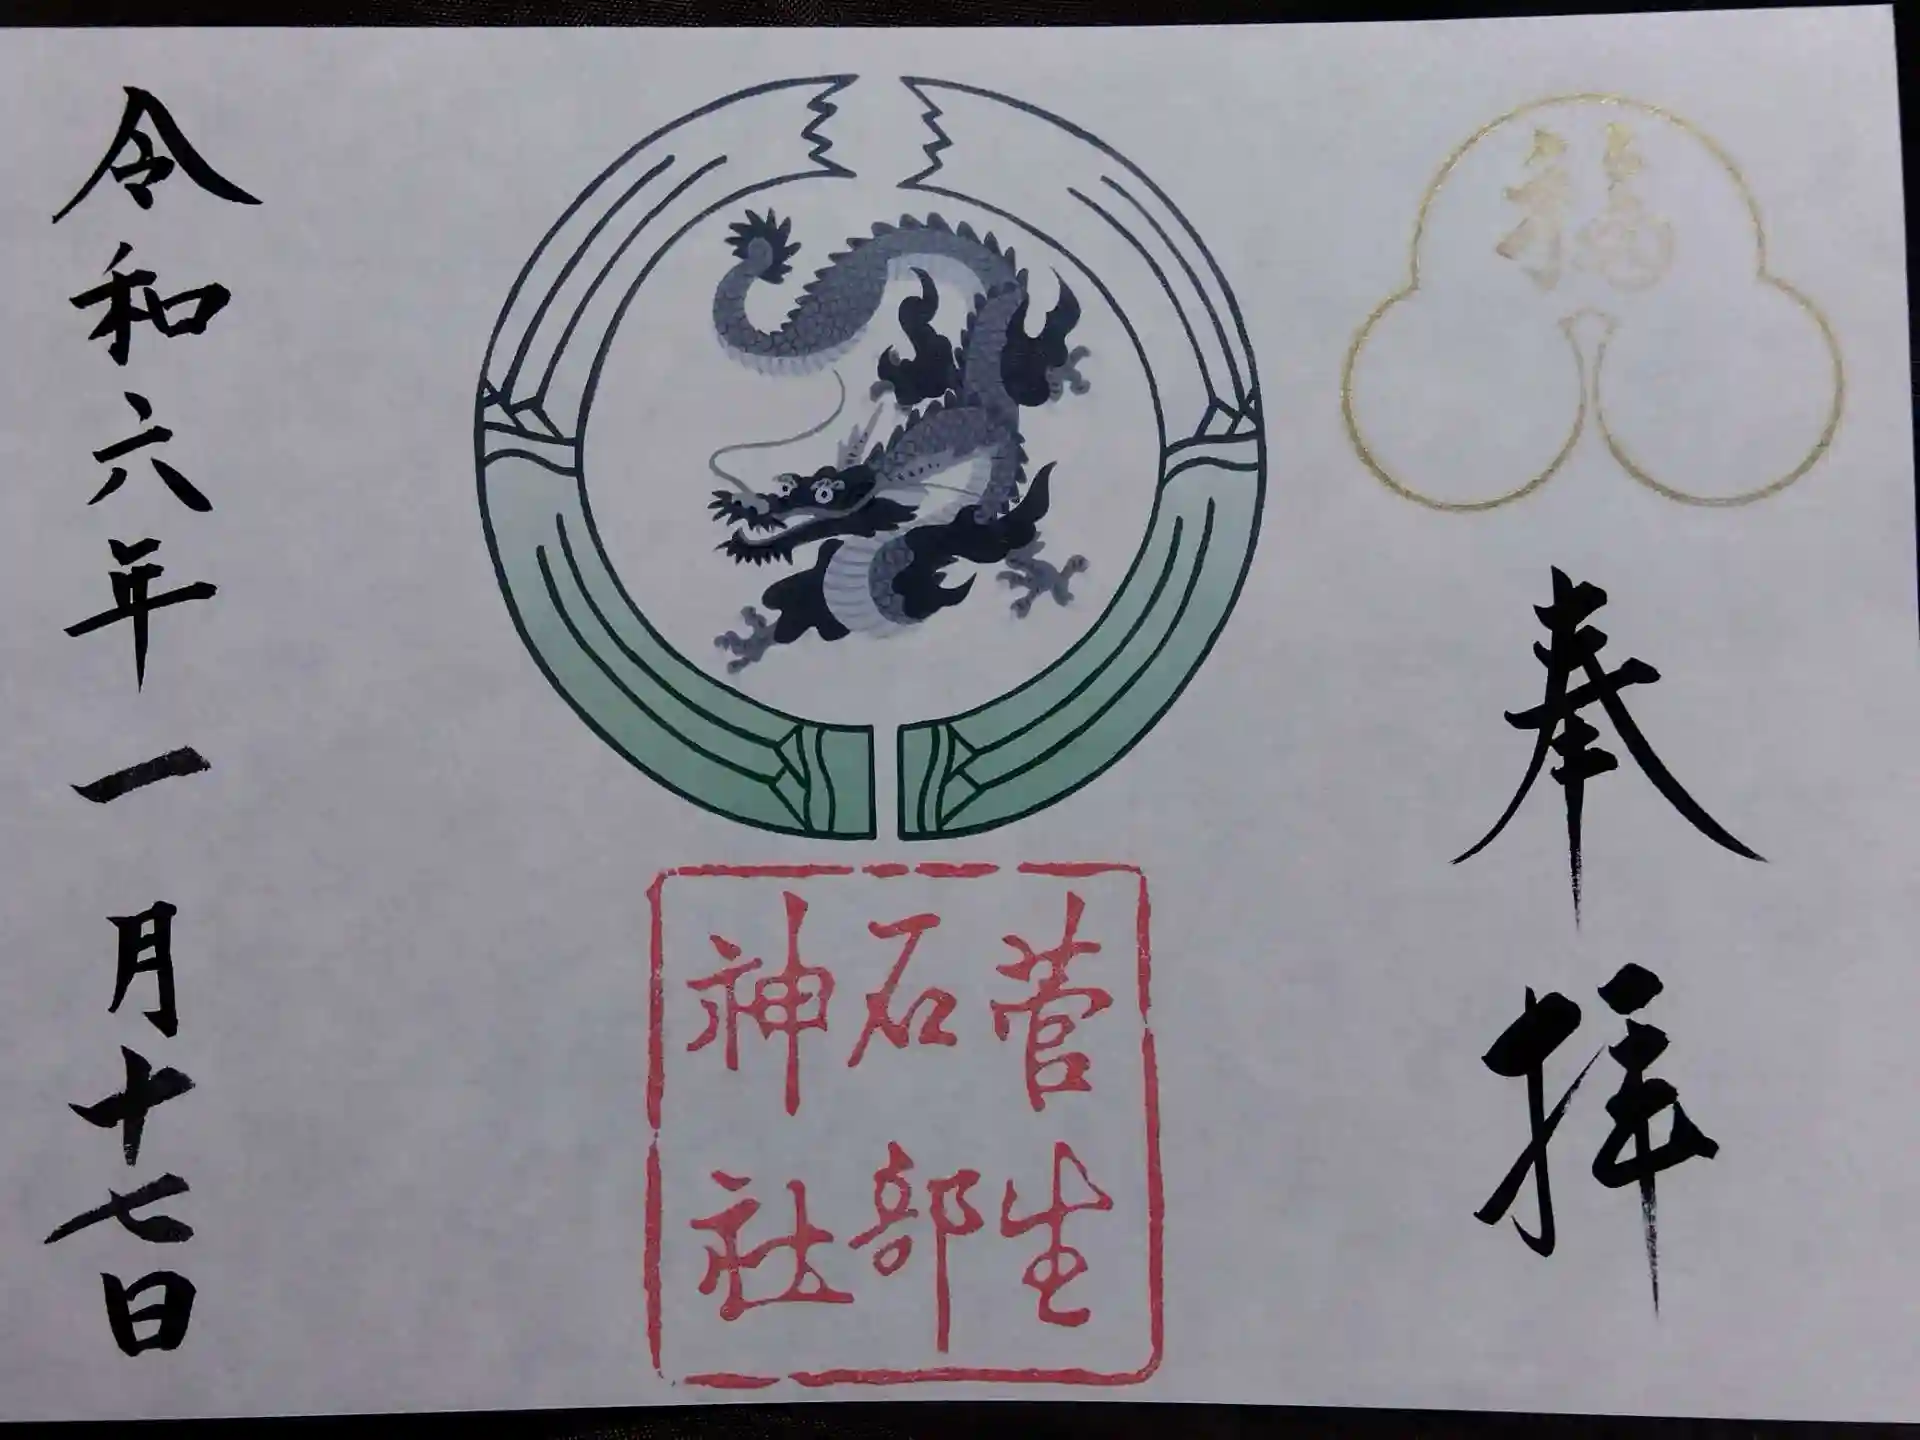 福
奉拝
菅生
石部
神社
令和六年一月十七日